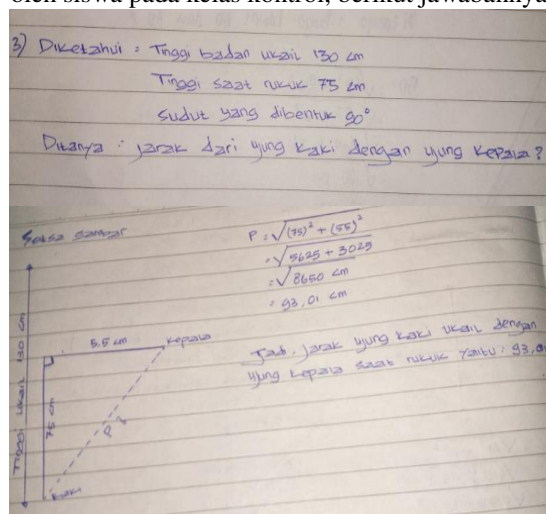 oleh siswa pada kelas kontrol, berikut jawabannya
3) Diketahui = Tinggi badan ukail 130 cm
Tinggi saat rukuk 75 cm
sudut yang dibentuk 90°
Ditanya : jarak dari ujung kaki dengan ujung kepala?
P = √(75)² + (55)²
= √5625 + 3025
= √8650 cm
= 93,01 cm
Tinggi ukail 130 cm
5,5 cm
kepala
75 cm
P
kaki
Jadi, jarak ujung kaki ukail dengan
ujung kepala saat rukuk yaitu : 93,0